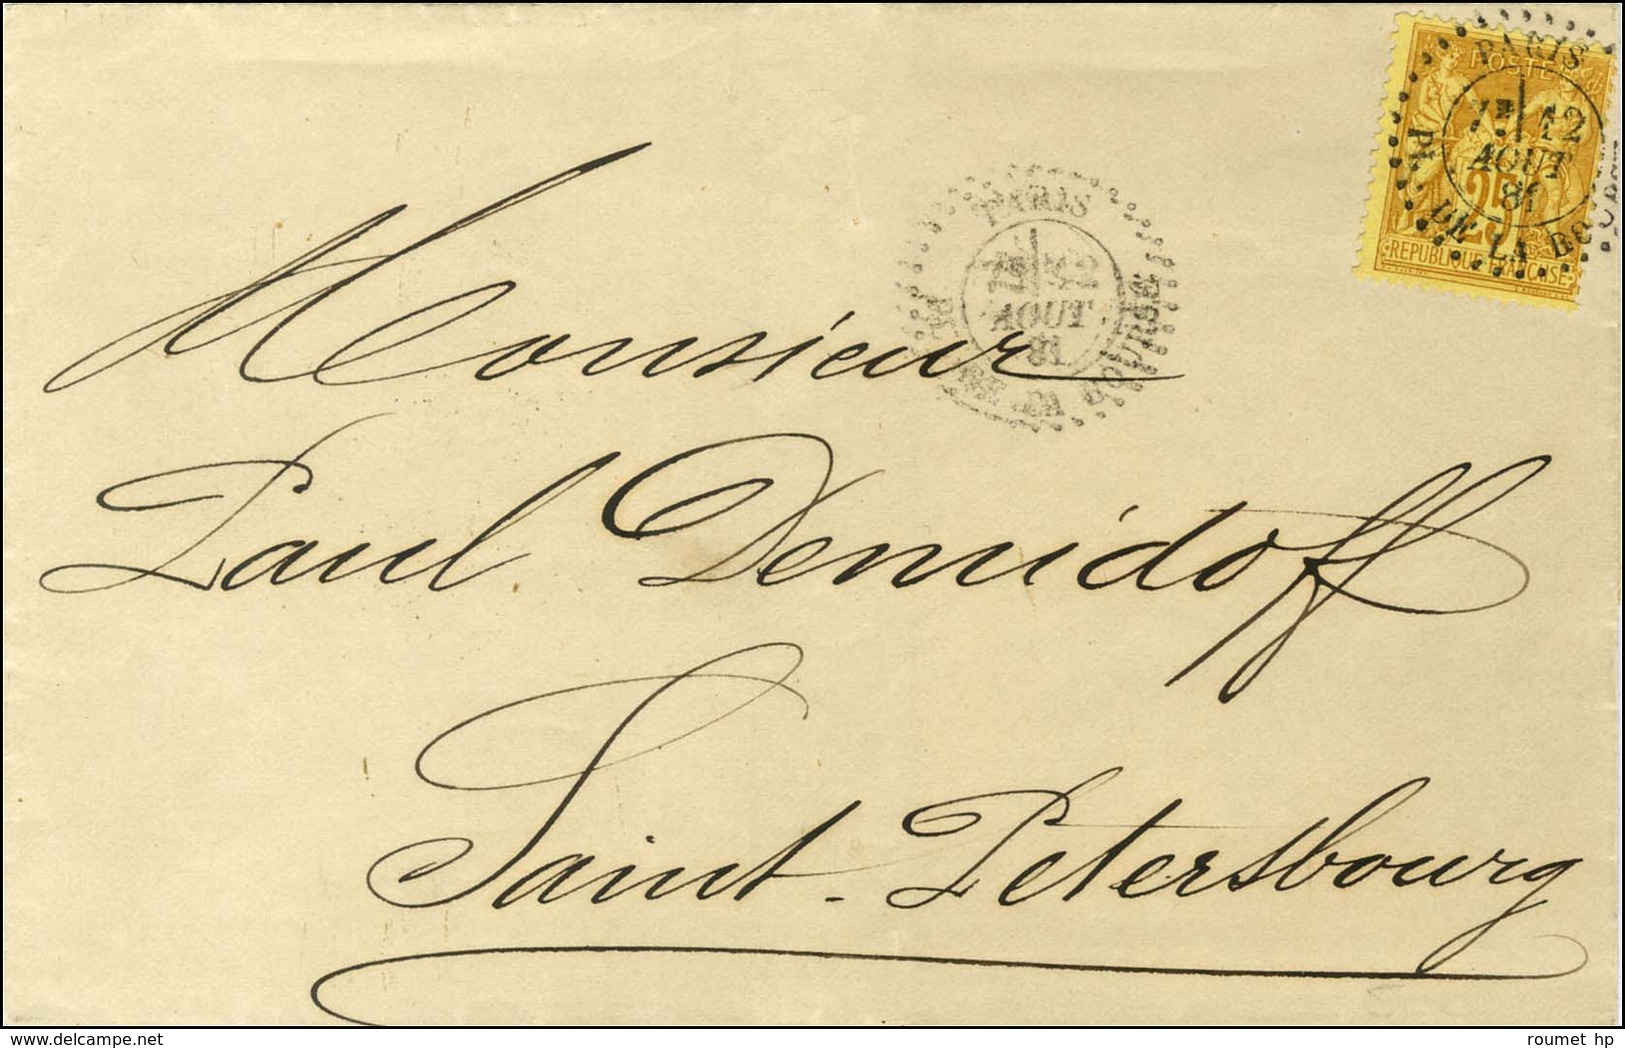 PARIS
7E 12
AOUT
81
PL. DE LA BOURSE
POSTES
25
REPUBLIQUE FRANCAISE
PARIS
7E 12
AOUT
81
PL. DE LA BOURSE
Monsieur
Paul Demidoff
Saint-Petersbourg
www.delcampe.net
roumet hp